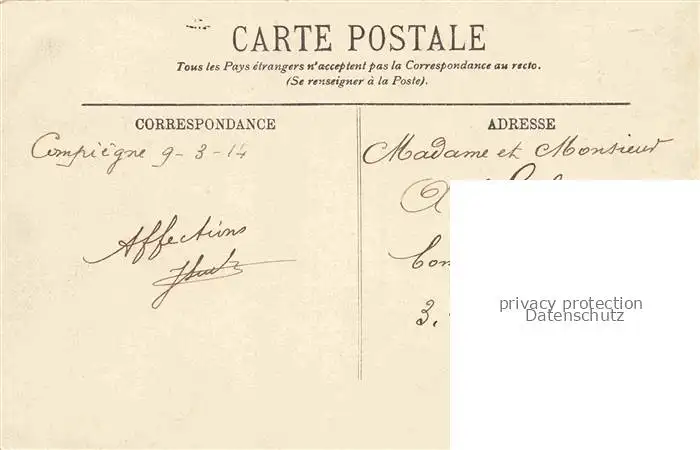 CARTE POSTALE
Tous les Pays étrangers n'acceptent pas la Correspondance au recto.
(Se renseigner à la Poste).
CORRESPONDANCE
ADRESSE
Compiègne 9-3-14
Affections
Madame et Monsieur
3.
privacy protection
Datenschutz